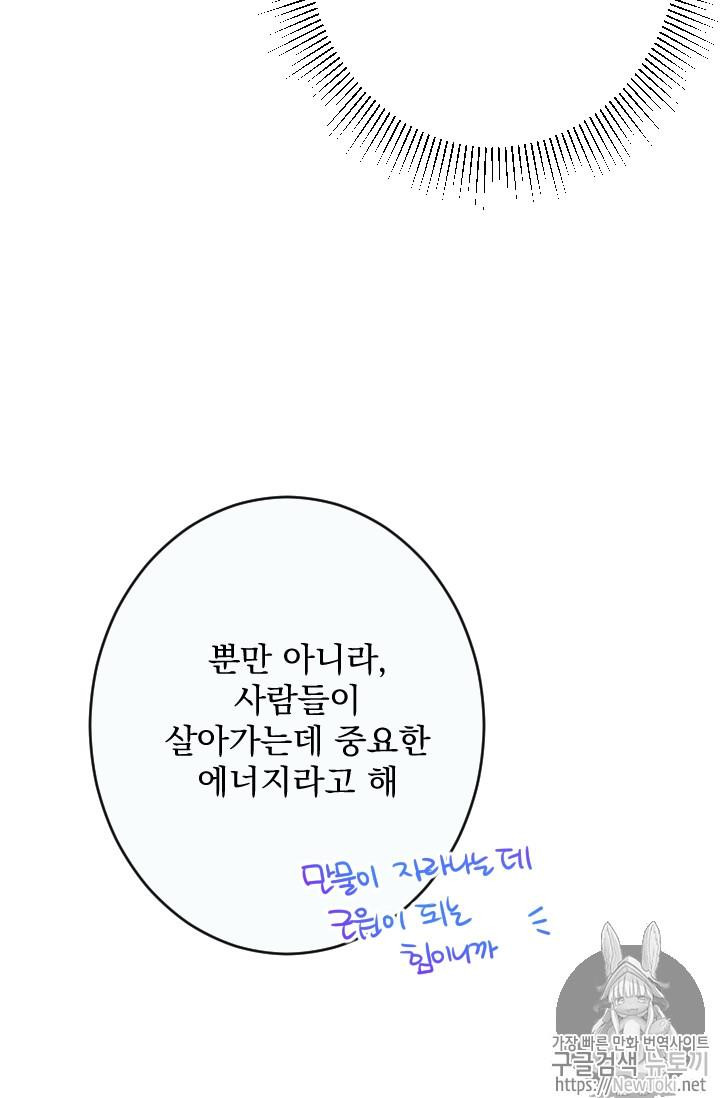 뿐만 아니라,
사람들이
살아가는데 중요한
에너지라고 해
만물이 자라나는데
근원이 되는
힘이니까
가장 빠른 만화 번역사이트
구글검색 뉴토끼
https://NewToki.net